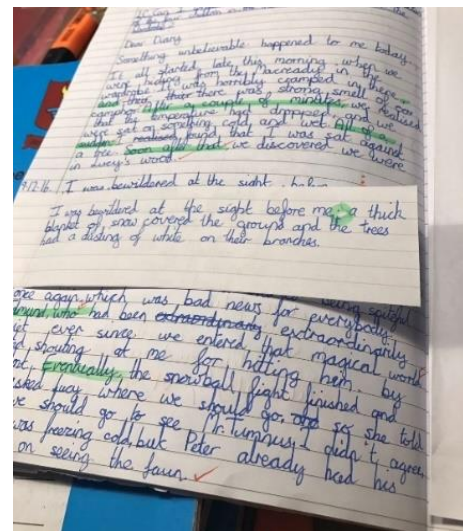 Dear Diary
Something unbelievable happened to me today.
It all started late this morning when we
were hiding from the Macready in the
wardrobe. It was horribly cramped in there
and then there was strong smell of
camphor. After a couple of minutes, we realised
that the temperature had dropped and we
were sat on something cold and wet. All of a
sudden I realised found that I was sat against
a tree. Soon after that, we discovered we were
in Lucy's wood.
9.12.16 I was bewildered at the sight
I was bewildered at the sight before me; a thick
blanket of snow covered the ground and the trees
had a dusting of white on their branches.
once again, which was bad news for everybody
Edmund, who had been extraordinary extraordinarily
ever since we entered that magical world
shouting at me for hitting him. by
Eventually, the snowball fight finished and
asked Lucy where we should go, and so she told
we should go to see Mr. Tumnus. I didn't agree,
was freezing cold, but Peter already had his
on seeing the faun.